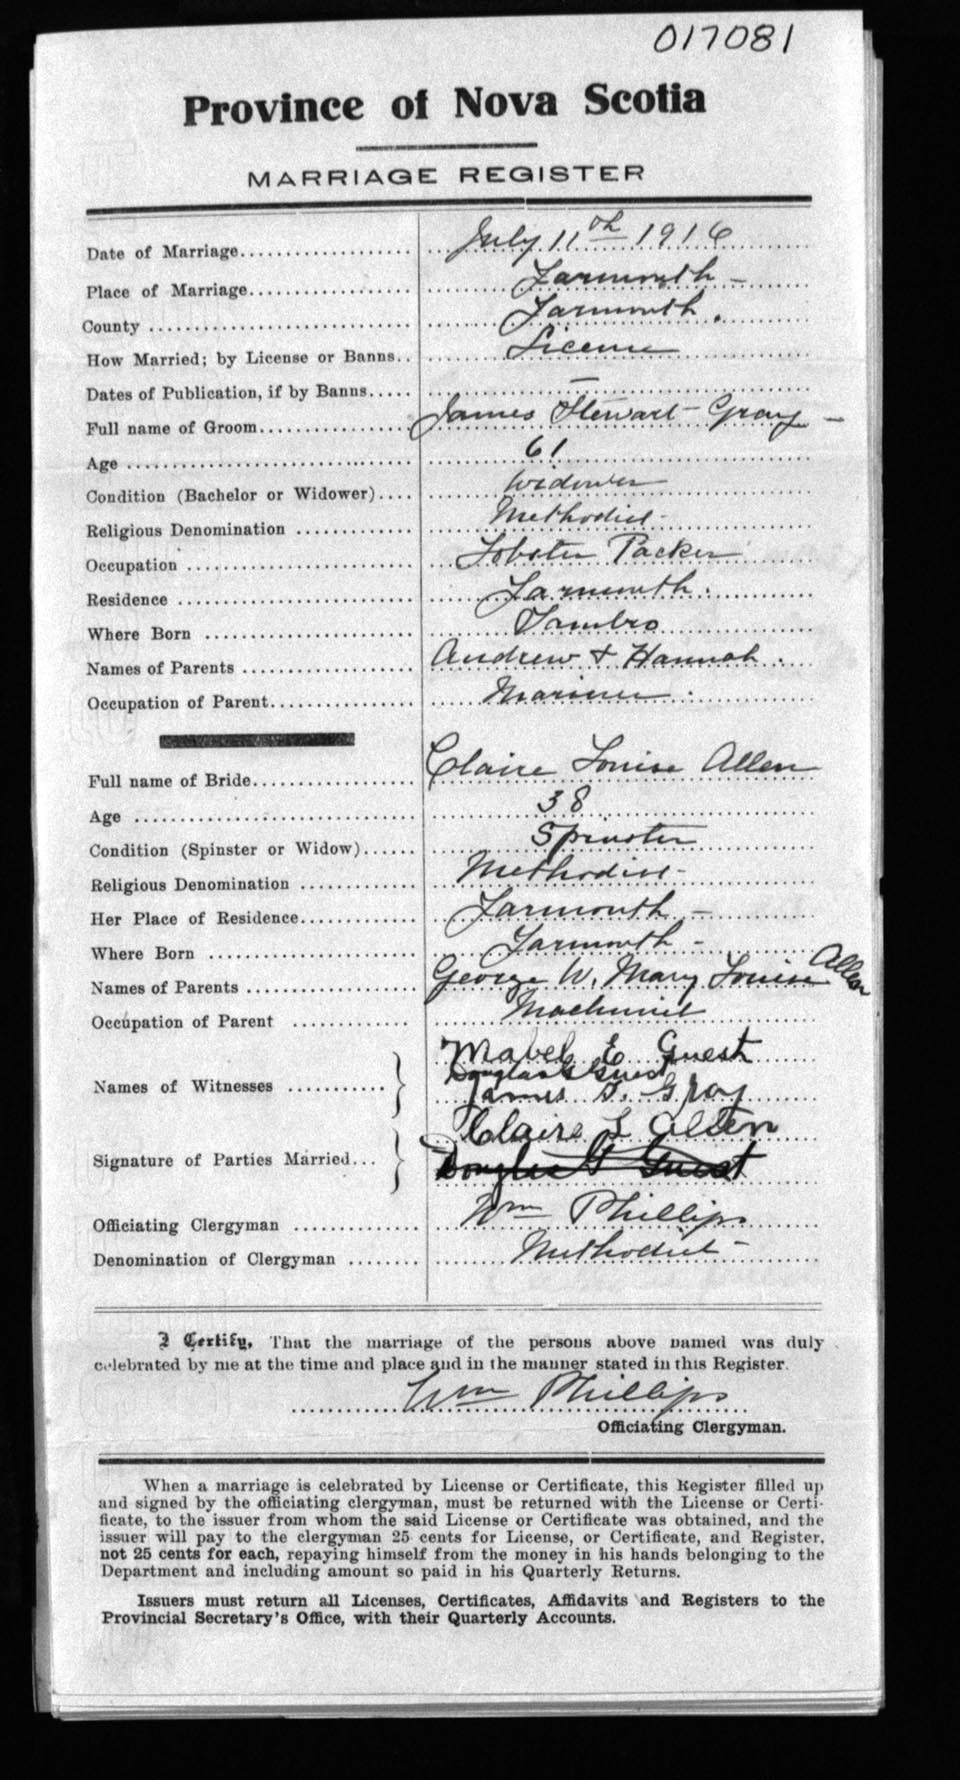 017081
Province of Nova Scotia
MARRIAGE REGISTER
Date of Marriage.................... July 11th 1916
Place of Marriage................... Yarmouth -
County .............................. Yarmouth.
How Married; by License or Banns.. License
Dates of Publication, if by Banns..... —
Full name of Groom.................. James Stewart Gray -
Age ................................. 61
Condition (Bachelor or Widower).... Widower
Religious Denomination .............. Methodist
Occupation .......................... Lobster Packer
Residence ........................... Yarmouth.
Where Born .......................... Sambro
Names of Parents .................... Andrew & Hannah.
Occupation of Parent................. Mariner.
Full name of Bride................... Claire Louise Allen
Age ................................. 38
Condition (Spinster or Widow)...... Spinster
Religious Denomination .............. Methodist
Her Place of Residence............... Yarmouth -
Where Born .......................... Yarmouth -
Names of Parents .................... George W. Mary Louise Allen
Occupation of Parent ................ Machinist
Names of Witnesses ........... Mabel E Guest
Douglas G Guest
James S. Gray
Signature of Parties Married... Claire L Allen
Douglas G Guest
Officiating Clergyman ............... Wm Phillips
Denomination of Clergyman ........ Methodist -
I Certify, That the marriage of the persons above named was duly
celebrated by me at the time and place and in the manner stated in this Register.
Wm Phillips
Officiating Clergyman.
When a marriage is celebrated by License or Certificate, this Register filled up
and signed by the officiating clergyman, must be returned with the License or Certi-
ficate, to the issuer from whom the said License or Certificate was obtained, and the
issuer will pay to the clergyman 25 cents for License, or Certificate, and Register,
not 25 cents for each, repaying himself from the money in his hands belonging to the
Department and including amount so paid in his Quarterly Returns.
Issuers must return all Licenses, Certificates, Affidavits and Registers to the
Provincial Secretary's Office, with their Quarterly Accounts.